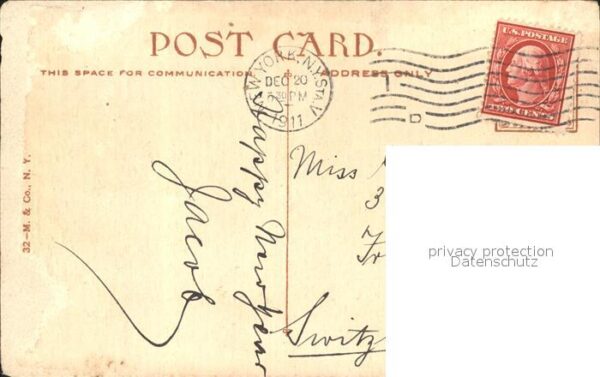 POST CARD.
THIS SPACE FOR COMMUNICATION.
ADDRESS ONLY
NEW YORK, N.Y. STA. V
DEC 20
30 PM
1911
1
D
U.S. POSTAGE
TWO CENTS
Happy New Year
Jacob
Miss
3
Fr
Switz
32-M. & Co., N. Y.
privacy protection
Datenschutz